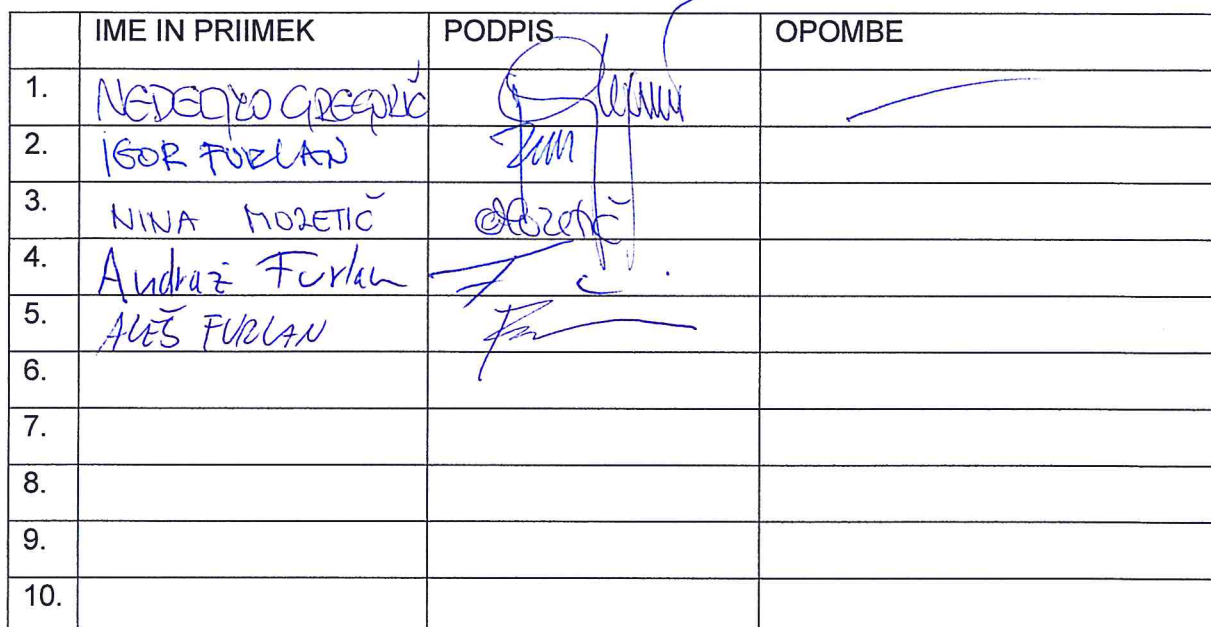 IME IN PRIIMEK PODPIS OPOMBE
1. NEDELJKO GREGORIČ
2. IGOR FURLAN
3. NINA MOZETIČ Mozetič
4. Andraž Furlan
5. ALEŠ FURLAN
6.
7.
8.
9.
10.